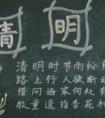 清明
清明时节雨纷
路上行人欲断
借问酒家何处有
牧童遥指杏花村